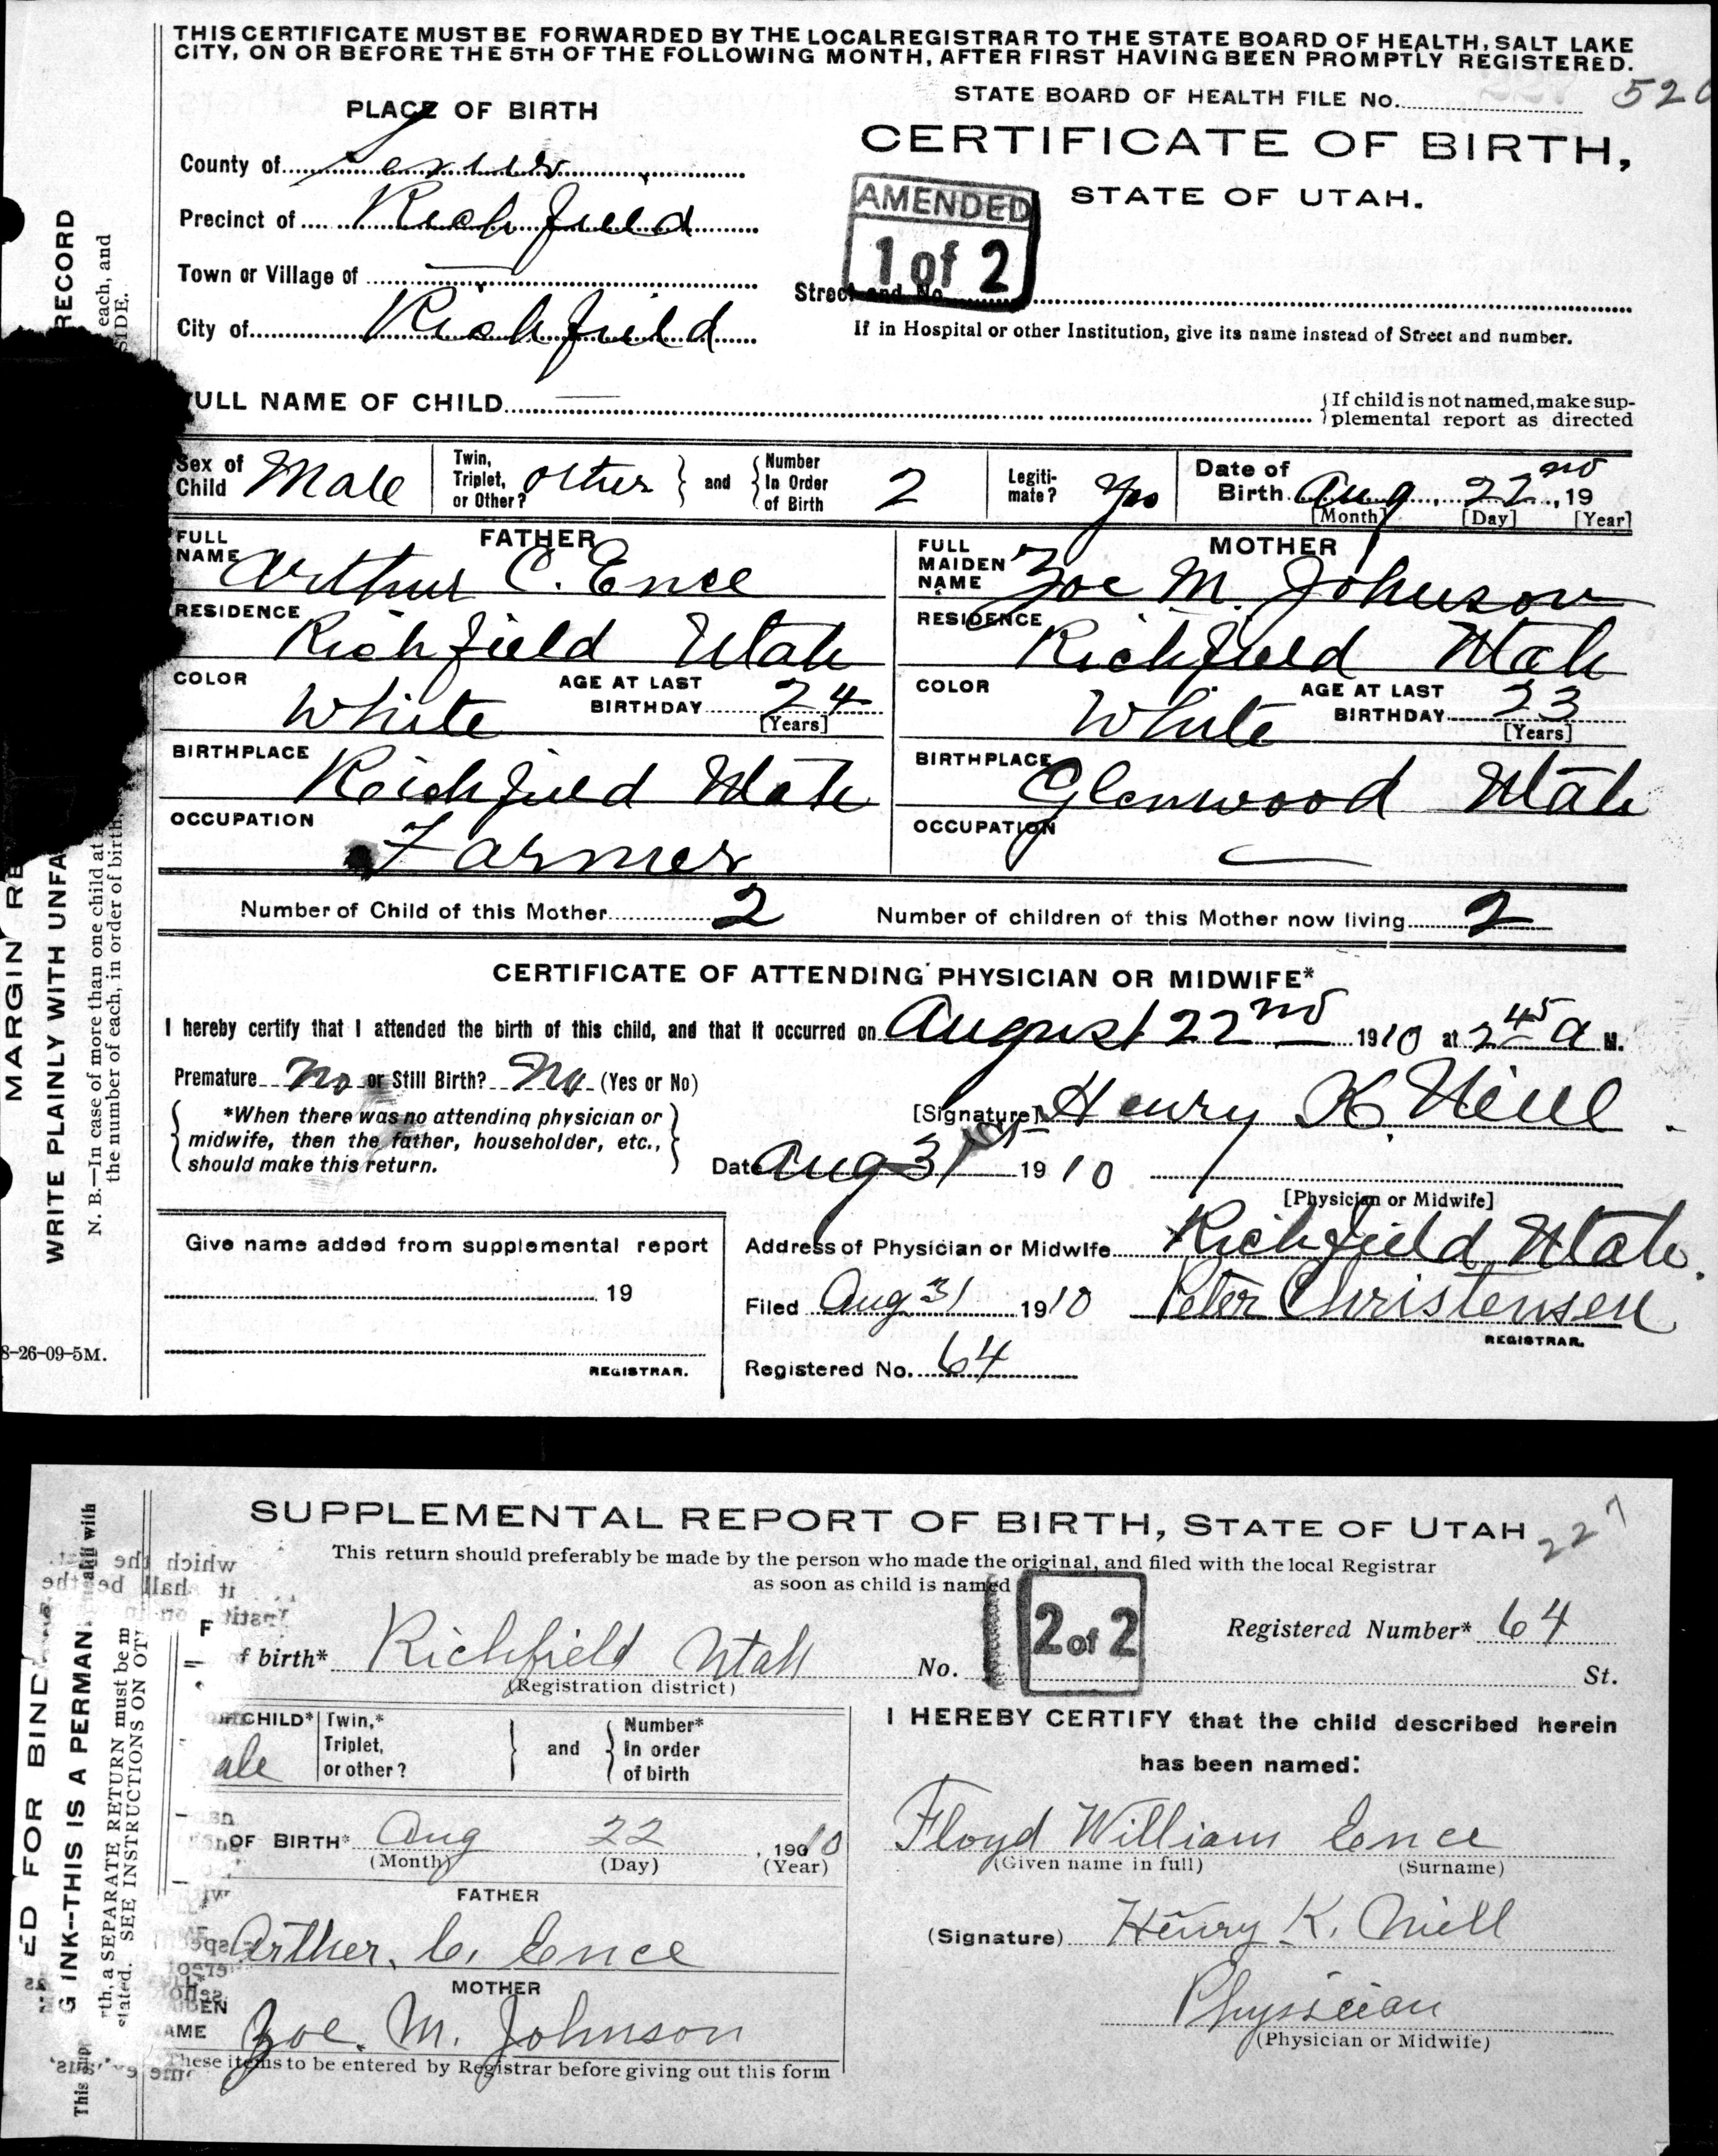 THIS CERTIFICATE MUST BE FORWARDED BY THE LOCAL REGISTRAR TO THE STATE BOARD OF HEALTH, SALT LAKE
CITY, ON OR BEFORE THE 5TH OF THE FOLLOWING MONTH, AFTER FIRST HAVING BEEN PROMPTLY REGISTERED.
STATE BOARD OF HEALTH FILE No.
PLACE OF BIRTH
CERTIFICATE OF BIRTH,
STATE OF UTAH.
AMENDED
1 of 2
County of Sevier
Precinct of Richfield
Town or Village of —
Street and No.
City of Richfield
If in Hospital or other Institution, give its name instead of Street and number.
FULL NAME OF CHILD —
{If child is not named, make sup-
plemental report as directed
Sex of Child Male
Twin, Triplet, or Other? other } and { Number In Order of Birth 2
Legiti-mate? Yes
Date of Birth Aug, 22nd, 19
[Month] [Day] [Year]
FATHER
FULL NAME Arthur C. Ence
RESIDENCE Richfield Utah
COLOR White AGE AT LAST BIRTHDAY 24 [Years]
BIRTHPLACE Richfield Utah
OCCUPATION Farmer
MOTHER
FULL MAIDEN NAME Zoe M. Johnson
RESIDENCE Richfield Utah
COLOR White AGE AT LAST BIRTHDAY 23 [Years]
BIRTHPLACE Glenwood Utah
OCCUPATION —
Number of Child of this Mother 2 Number of children of this Mother now living 2
CERTIFICATE OF ATTENDING PHYSICIAN OR MIDWIFE*
I hereby certify that I attended the birth of this child, and that it occurred on August 22nd 1910 at 2 45 a M.
Premature No or Still Birth? No (Yes or No)
{ *When there was no attending physician or
midwife, then the father, householder, etc.,
should make this return. }
[Signature] Henry K. Neill
Date Aug 31st 1910
[Physician or Midwife]
Give name added from supplemental report
19
REGISTRAR.
Address of Physician or Midwife Richfield Utah.
Filed Aug 31 1910 Peter Christensen
REGISTRAR.
Registered No. 64
8-26-09-5M.
RECORD
each, and
SIDE.
MARGIN RE
WRITE PLAINLY WITH UNFA
N. B.—In case of more than one child at
the number of each, in order of birth,
SUPPLEMENTAL REPORT OF BIRTH, STATE OF UTAH
227
This return should preferably be made by the person who made the original, and filed with the local Registrar
as soon as child is named
2 of 2
Registered Number* 64
f birth* Richfield Utah No. St.
(Registration district)
CHILD* ale
Twin,* Triplet, or other? } and { Number* In order of birth
OF BIRTH* Aug 22, 1910
(Month) (Day) (Year)
FATHER
Arther. C. Ence
MOTHER
AME Zoe. M. Johnson
These items to be entered by Registrar before giving out this form
I HEREBY CERTIFY that the child described herein
has been named:
Floyd William Ence
(Given name in full) (Surname)
(Signature) Henry K. Neill
Physician
(Physician or Midwife)
ED FOR BIND
G INK--THIS IS A PERMAN
th, a SEPARATE RETURN must be m
stated. SEE INSTRUCTIONS ON OT